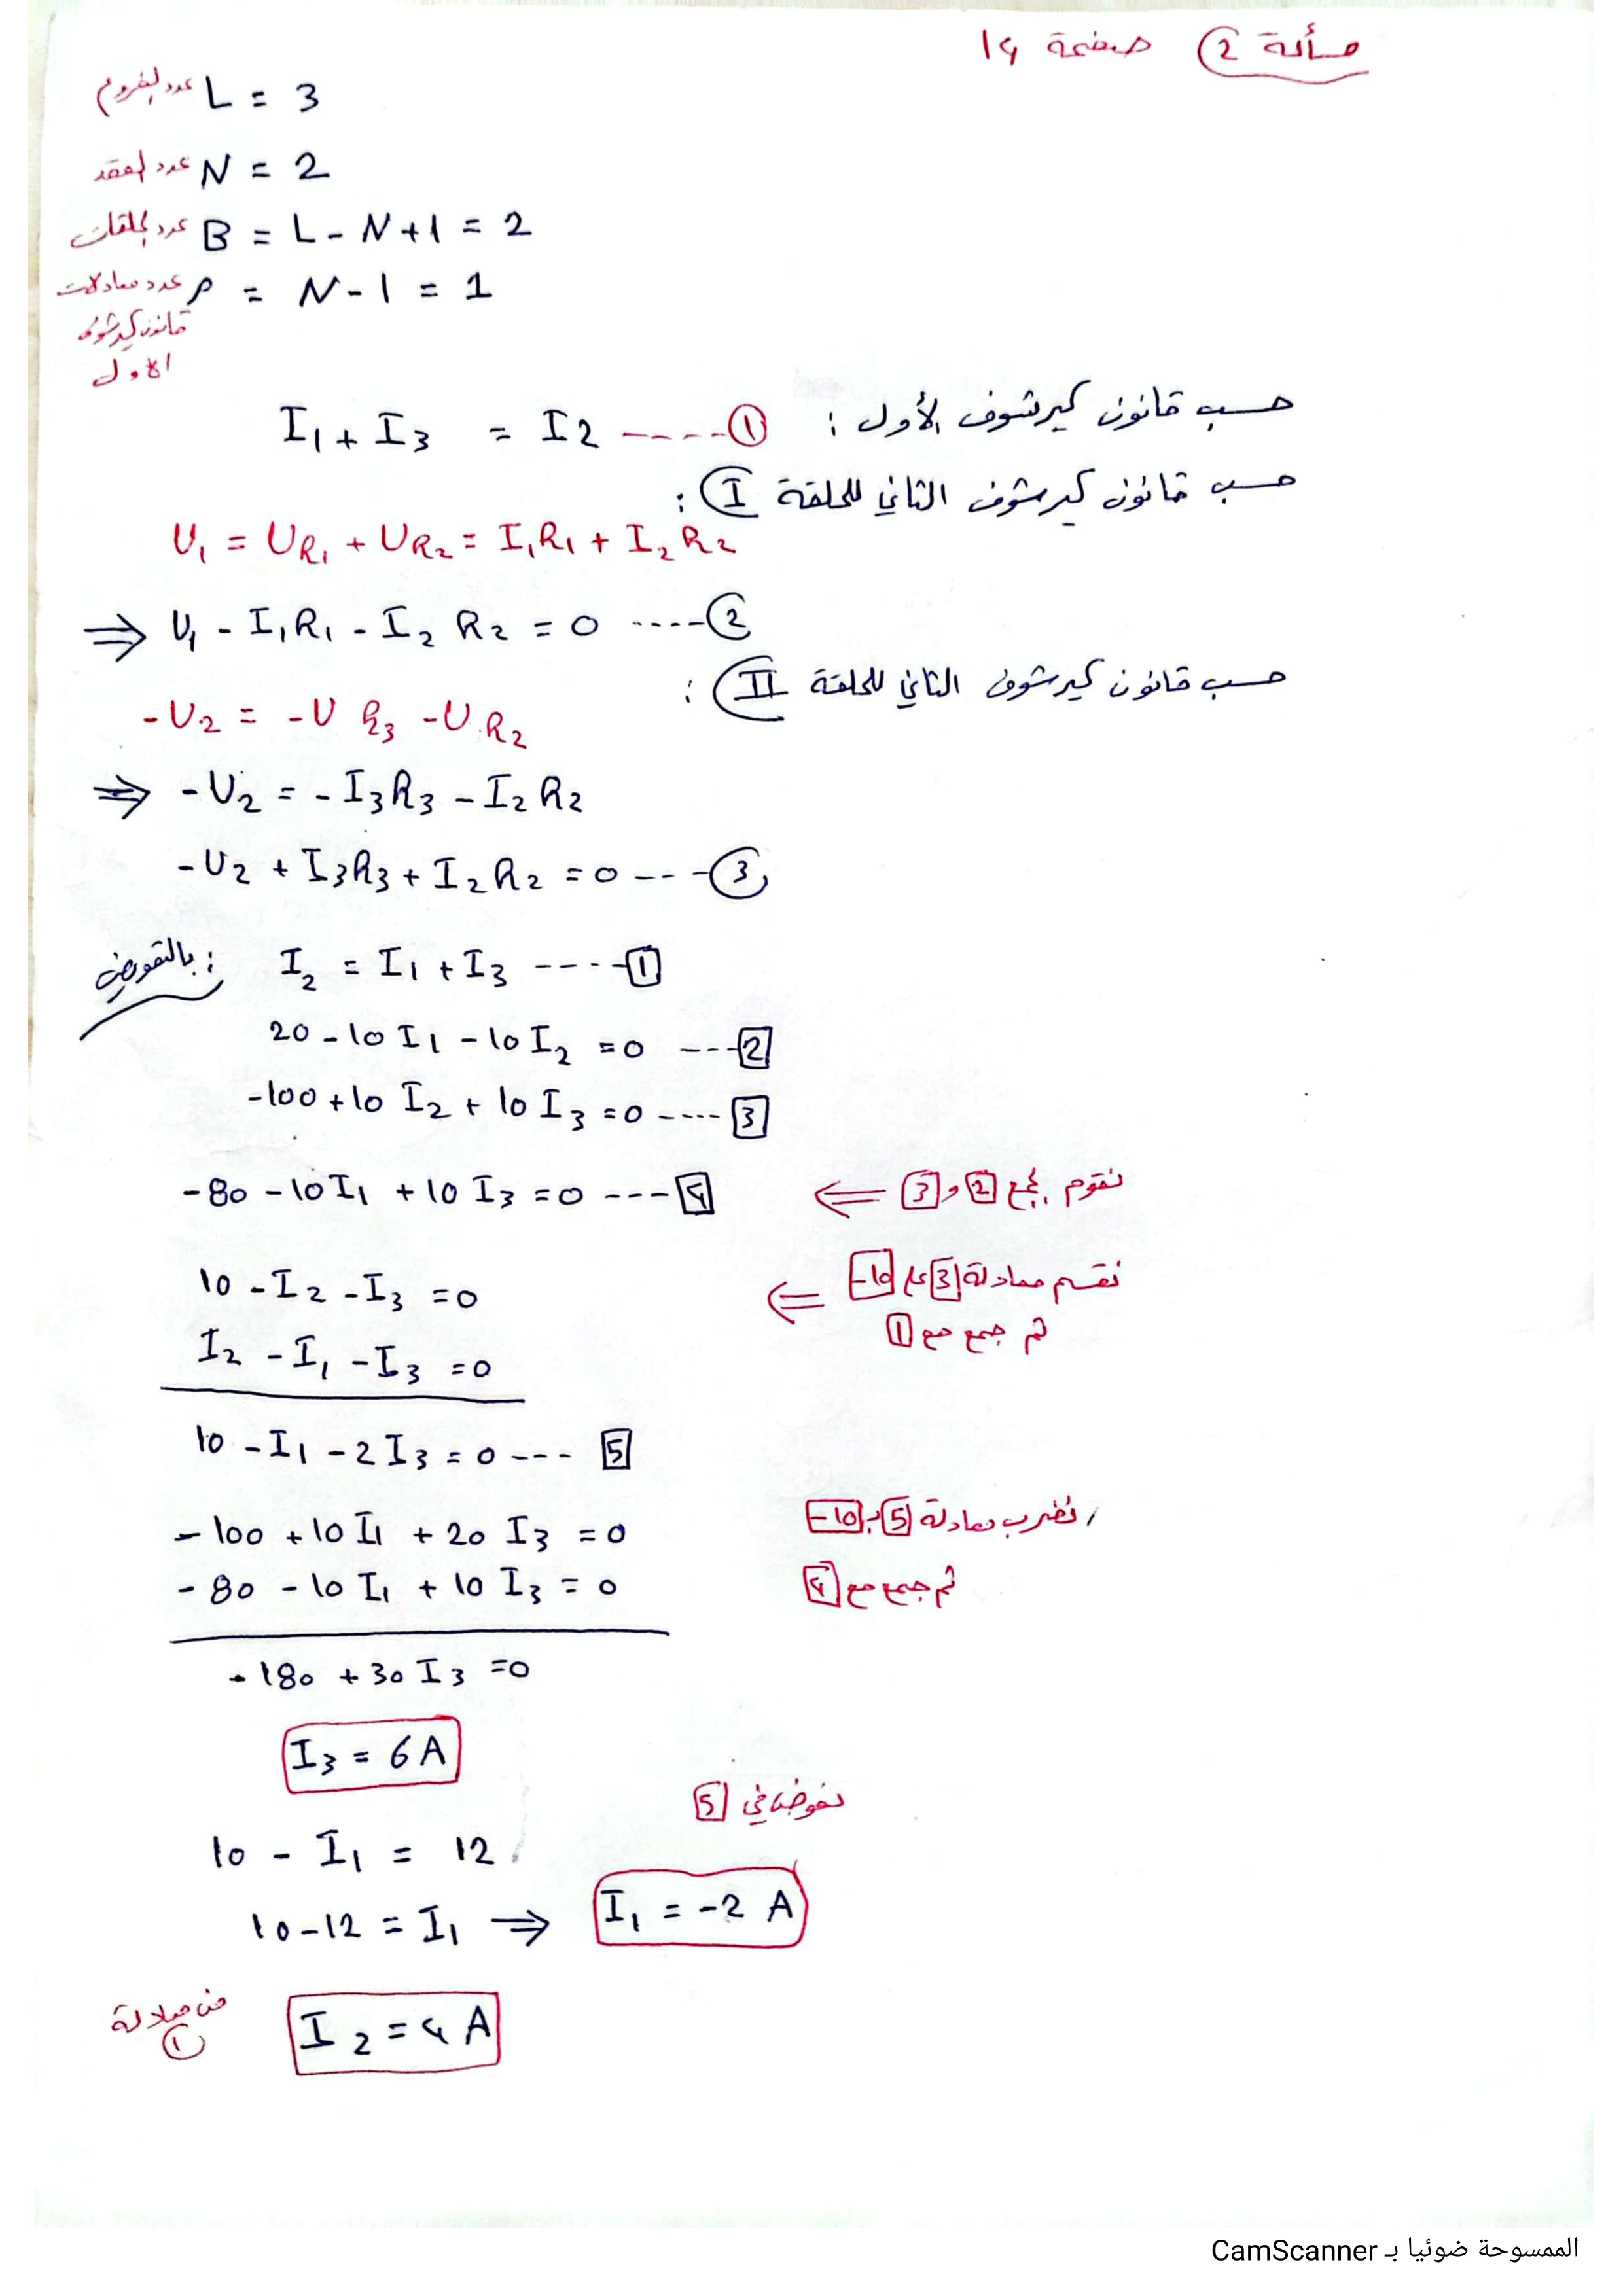 مسألة 2 صفحة 14
عدد الفروع L = 3
عدد العقد N = 2
عدد الحلقات B = L - N + 1 = 2
عدد معادلات P = N - 1 = 1
قانون كيرشوف
الاول
حسب قانون كيرشوف الأول :
I1 + I3 = I2 ----- 1
حسب قانون كيرشوف الثاني للحلقة I :
U1 = UR1 + UR2 = I1R1 + I2R2
⇒ U1 - I1R1 - I2R2 = 0 ----- 2
حسب قانون كيرشوف الثاني للحلقة II :
-U2 = -UR3 - UR2
⇒ -U2 = -I3R3 - I2R2
-U2 + I3R3 + I2R2 = 0 --- 3
بالتعويض : I2 = I1 + I3 ---- 1
20 - 10 I1 - 10 I2 = 0 --- 2
-100 + 10 I2 + 10 I3 = 0 ---- 3
-80 - 10 I1 + 10 I3 = 0 --- 4 ⇐ نقوم بجمع 2 و 3
10 - I2 - I3 = 0 ⇐ نقسم معادلة 3 على -10
I2 - I1 - I3 = 0 ثم جمع مع 1
10 - I1 - 2 I3 = 0 --- 5
-100 + 10 I1 + 20 I3 = 0 نضرب معادلة 5 بـ -10
-80 - 10 I1 + 10 I3 = 0 ثم جمع مع 4
-180 + 30 I3 = 0
I3 = 6 A
نعوض في 5
10 - I1 = 12
10 - 12 = I1 ⇒ I1 = -2 A
من معادلة 1 I2 = 4 A
الممسوحة ضوئيا بـ CamScanner